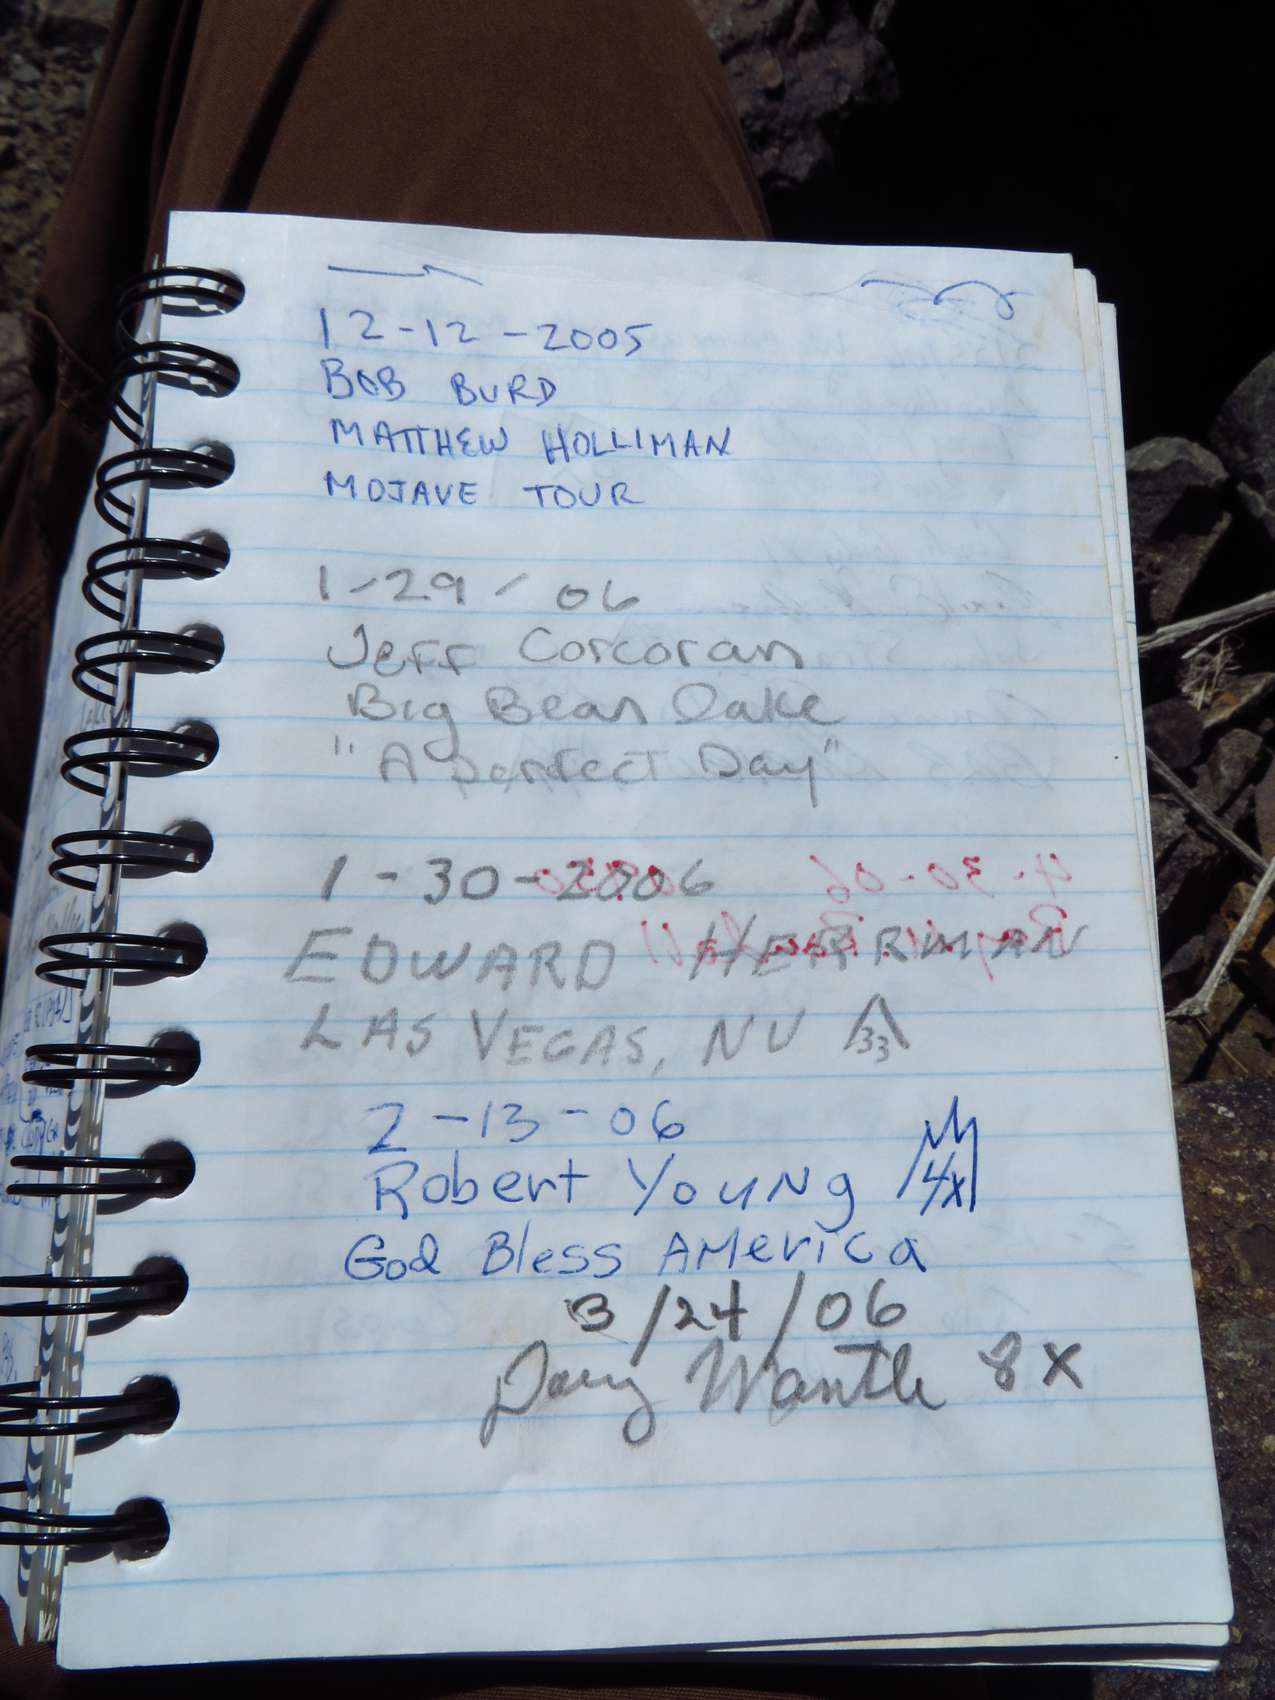 12-12-2005
BOB BURD
MATTHEW HOLLIMAN
MOJAVE TOUR
1/29/06
Jeff Corcoran
Big Bear Lake
"A perfect Day"
1-30-2006
EDWARD HERRMAN
LAS VEGAS, NV 33
2-13-06
Robert Young 4x
God Bless America
3/24/06
Doug Mantle 8X